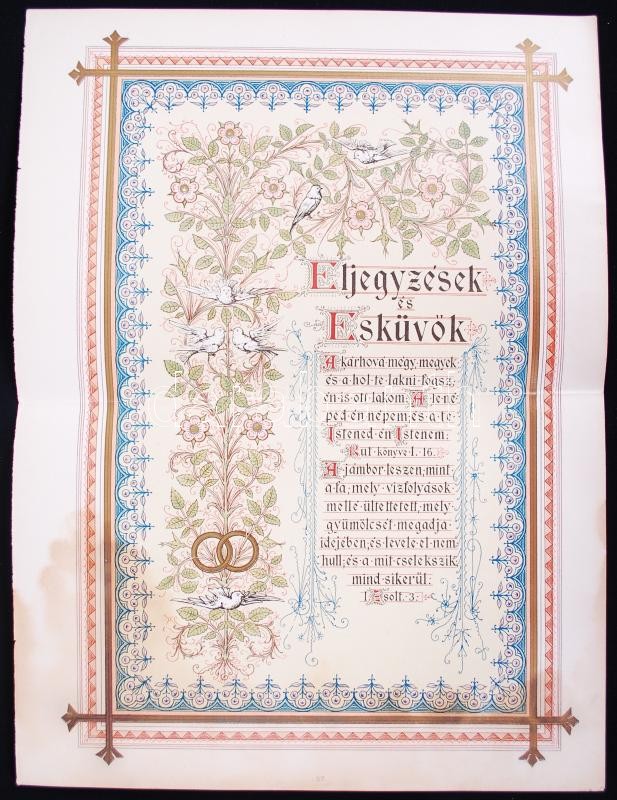 Eljegyzések
és
Esküvők
Akárhova mégy, megyek
és a hol te lakni fogsz,
én is ott lakom. A te né
ped én népem, és a te
Istened én Istenem.
Rut könyve I. 16.
A jámbor leszen, mint
a fa, mely vizfolyások
mellé ültettetett, mely
gyümölcsét megadja
idejében, és levele el nem
hull; és a mit cselekszik
mind sikerül.
I. Zsolt. 3.
57